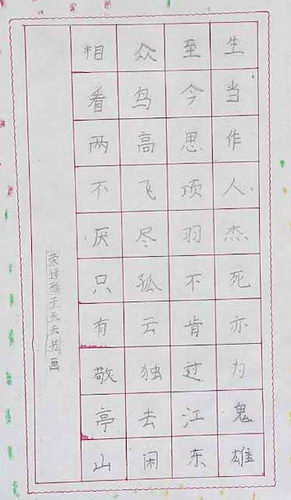 生当作人杰死亦为鬼雄
至今思项羽不肯过江东
众鸟高飞尽孤云独去闲
相看两不厌只有敬亭山
书画